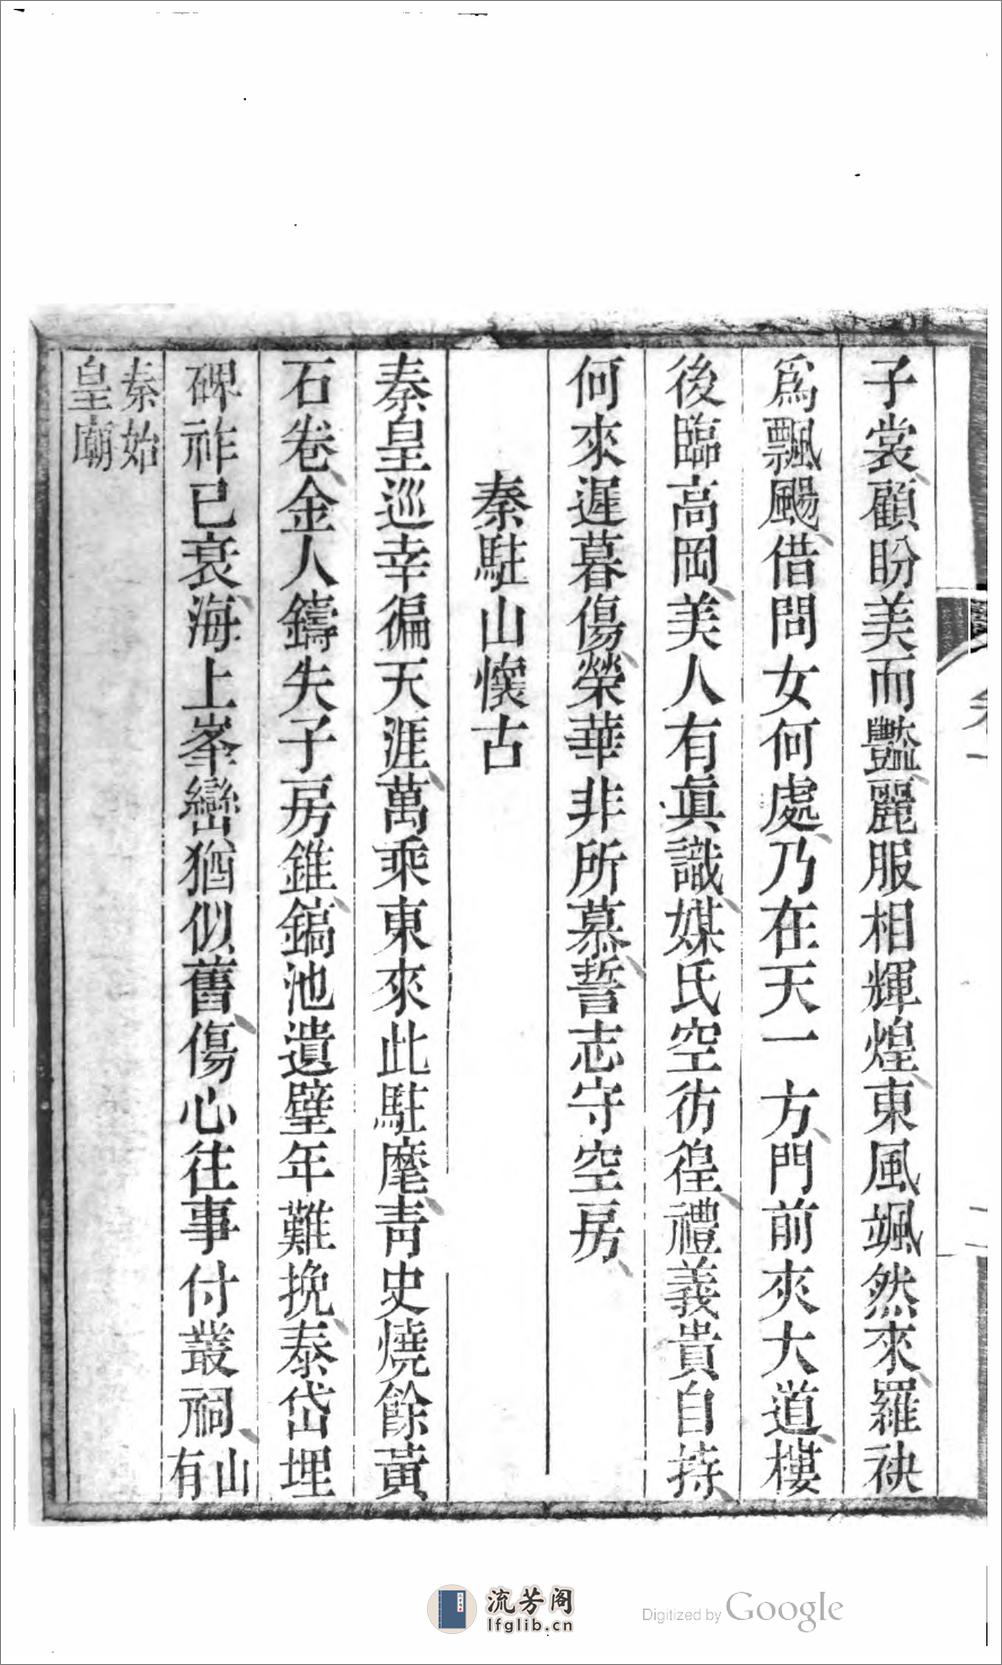 子裳顧盼美而豔麗服相輝煌東風颯然來羅袂
爲飄颺借問女何處乃在天一方門前夾大道樓
後臨高岡美人有眞識媒氏空彷徨禮義貴自持
何來遲暮傷榮華非所慕誓志守空房
秦駐山懷古
秦皇巡幸徧天涯萬乘東來此駐麾靑史燒餘黃
石卷金人鑄失子房錐鎬池遺璧年難挽泰岱埋
碑祚已衰海上峯巒猶似舊傷心往事付叢祠山有
秦始
皇廟
流芳阁
lfglib.cn
Digitized by Google